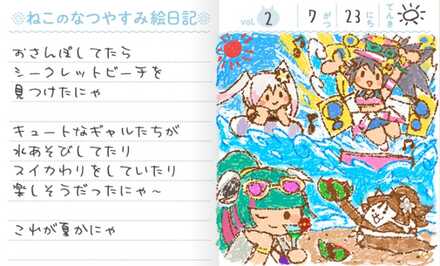 ねこのなつやすみ絵日記
vol. 2 7がつ 23にち てんき
おさんぽしてたら
シークレットビーチを
見つけたにゃ
キュートなギャルたちが
水あそびしてたり
スイカわりをしていたり
楽しそうだったにゃ~
これが夏かにゃ